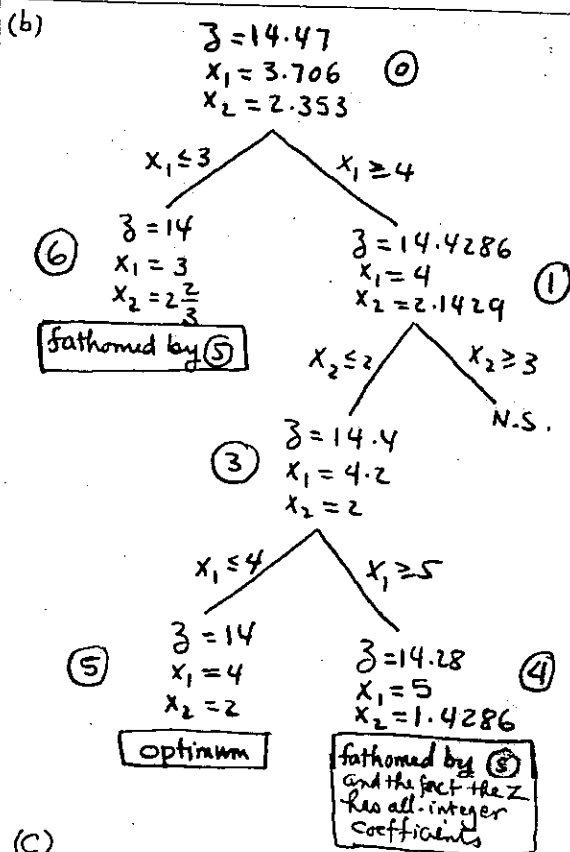 (b)
z = 14.47
x₁ = 3.706
x₂ = 2.353
⓪
x₁ ≤ 3
x₁ ≥ 4
⑥
z = 14
x₁ = 3
x₂ = 2 2/3
fathomed by ⑤
z = 14.4286
x₁ = 4
x₂ = 2.1429
①
x₂ ≤ 2
x₂ ≥ 3
N.S.
③
z = 14.4
x₁ = 4.2
x₂ = 2
x₁ ≤ 4
x₁ ≥ 5
⑤
z = 14
x₁ = 4
x₂ = 2
optimum
z = 14.28
x₁ = 5
x₂ = 1.4286
④
fathomed by ⑤
and the fact the z
has all-integer
coefficients
(C)